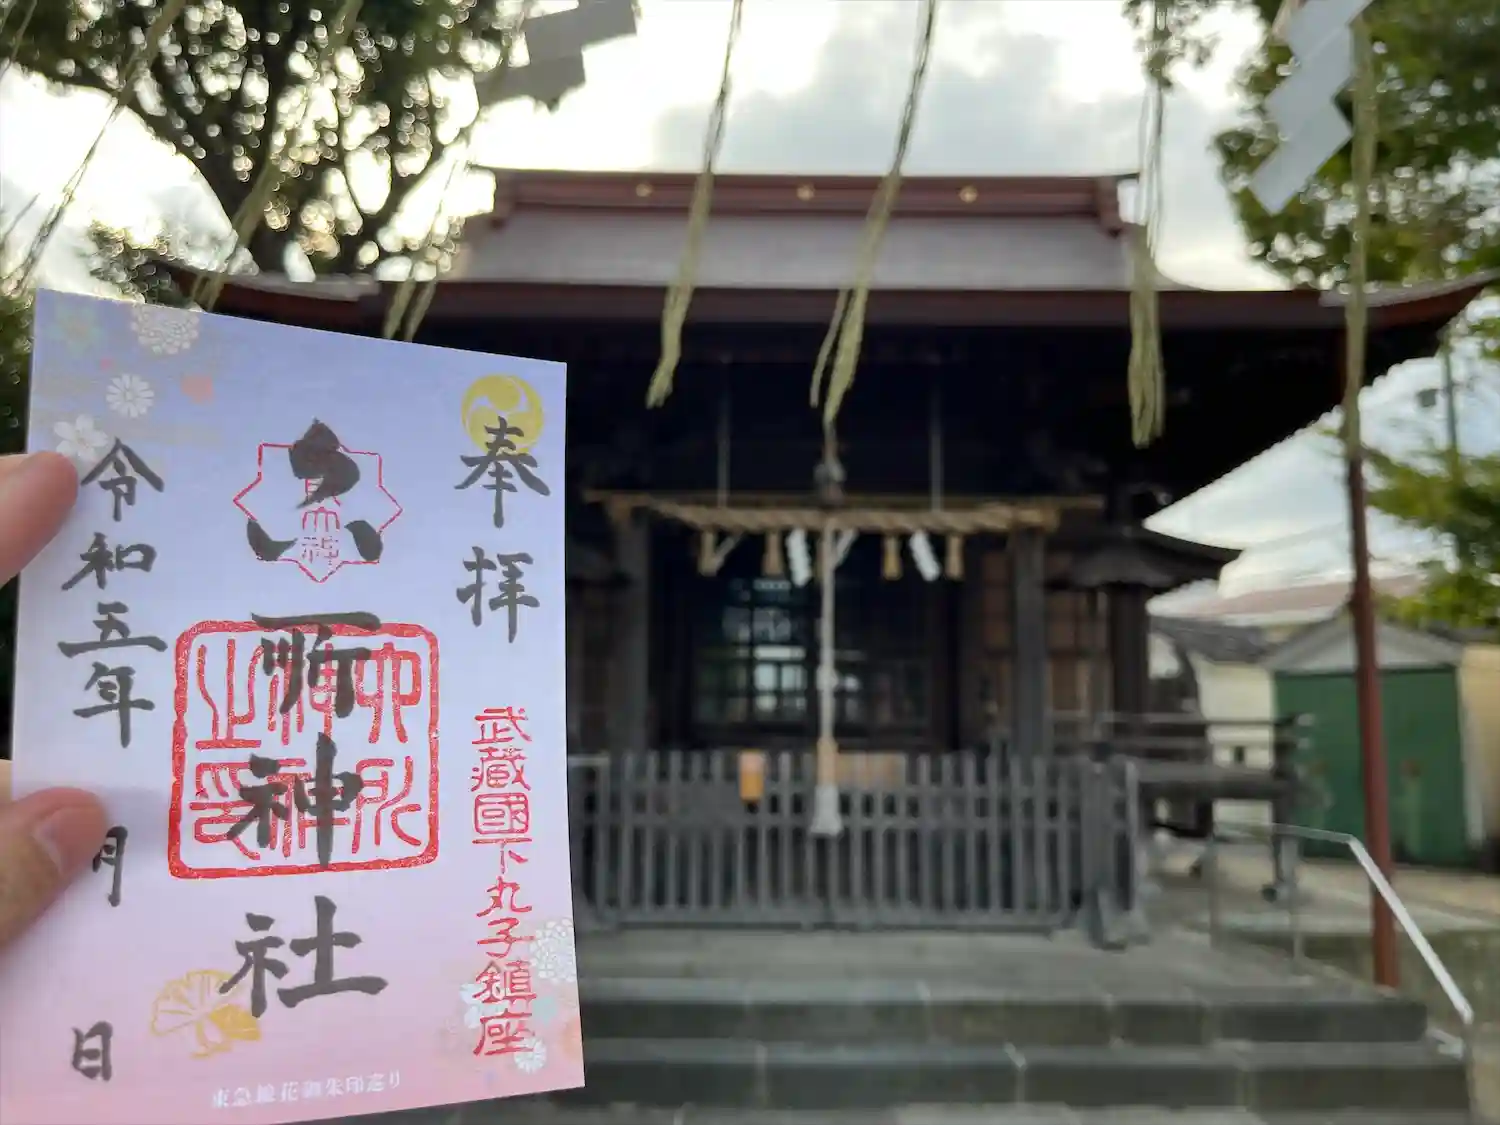 奉拝
武蔵國下丸子鎮座
六所神社
六所神社之印
令和五年
月
日
東急線花御朱印巡り